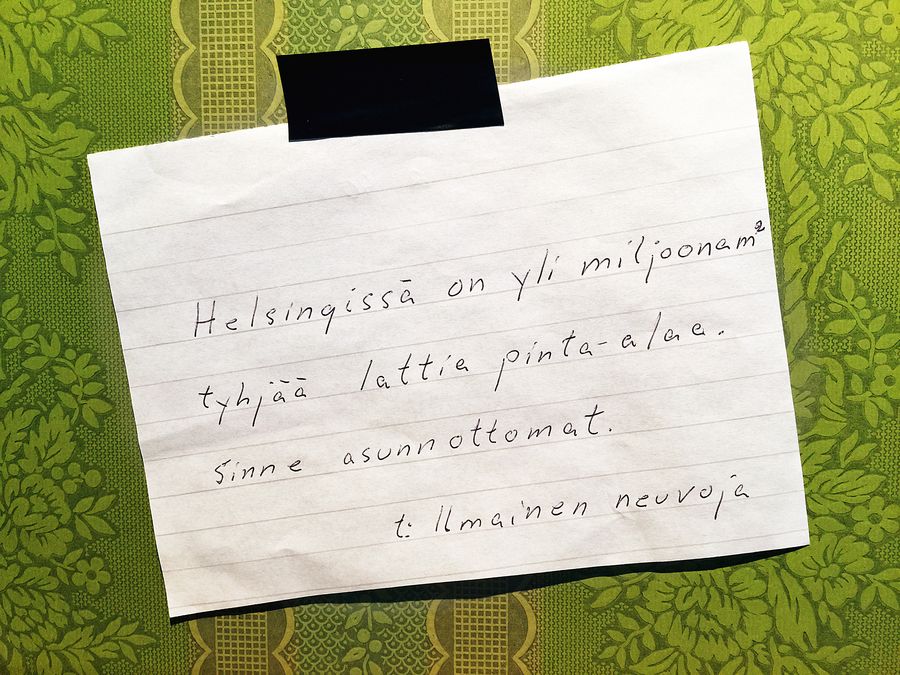 Helsingissä on yli miljoonam²
tyhjää lattia pinta-alaa.
Sinne asunnottomat.
t: Ilmainen neuvoja